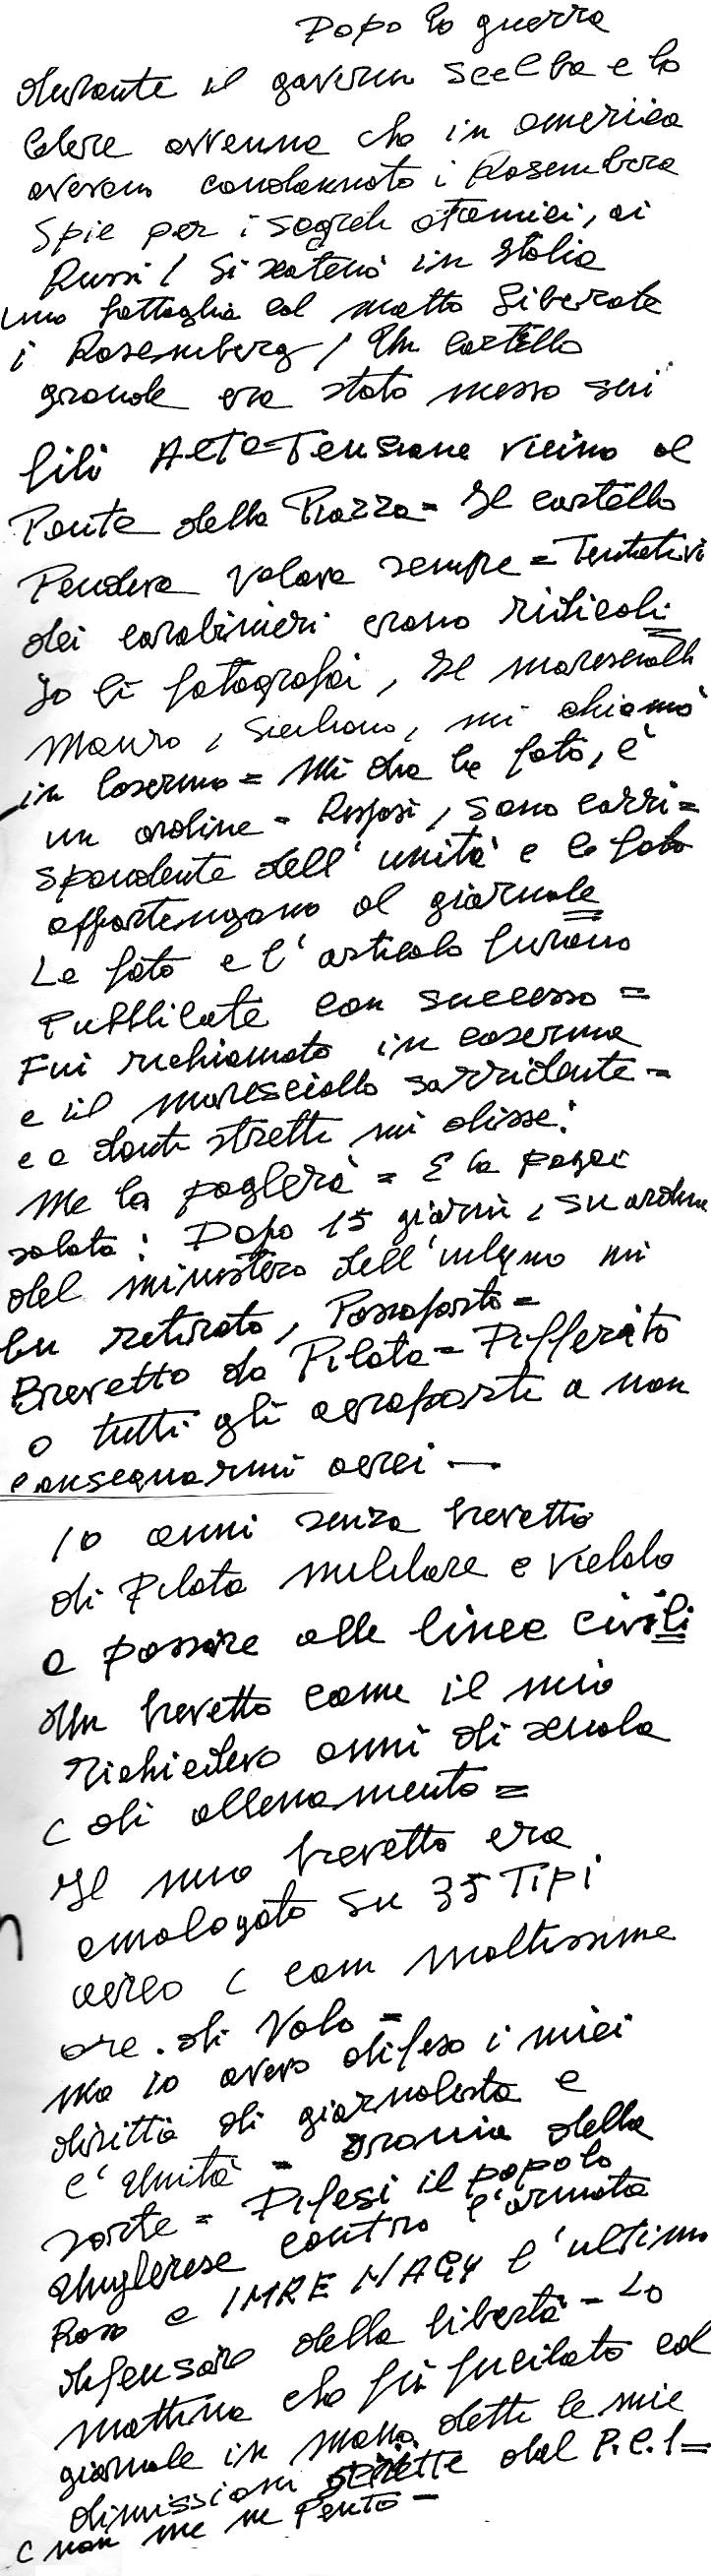 Dopo la guerra
durante il governo Scelba e la
Celere avvenne che in America
avevano condannato i Rosemberg
Spie per i segreti atomici, ai
Russi / Si scatenò in Italia
una battaglia col motto Liberate
i Rosemberg / Un cartello
grande era stato messo sui
fili Alta-Tensione vicino al
Ponte della Piazza = Il cartello
Pendeva volava sempre = Tentativi
dei carabinieri erano ridicoli
Io li fotografai, Il maresciallo
Mauro, siciliano, mi chiamò
in Caserma = Mi dia le foto, è
un ordine - Risposi, sono corri=
spondente dell'unità e le foto
appartengono al giornale
Le foto e l'articolo furono
Pubblicate con successo =
Fui richiamato in caserma
e il maresciallo sorridente -
e a denti stretti mi disse:
Me la pagherà = E la pagai
salata: Dopo 15 giorni, su ordine
del ministero dell'interno mi
fu ritirato, Passaporto =
Brevetto da Pilota = Diffidato
a tutti gli aeroporti a non
consegnarmi aerei —
10 anni senza brevetto
di Pilota militare e vietato
a passare alle linee civili
Un brevetto come il mio
richiedeva anni di scuola
e di allenamento =
Il mio brevetto era
omologato su 35 Tipi
aereo e com moltissime
ore di Volo =
Ma io avevo difeso i miei
diritti di giornalista e
l'Unità - ironia della
sorte = Difesi il popolo
Ungherese contro l'armata
Rossa e IMRE NAGY l'ultimo
difensore della libertà - La
mattina che fù fucilato col
giornale in mano detti le mie
dimissioni scritte dal P.C.I =
e non me ne Pento -